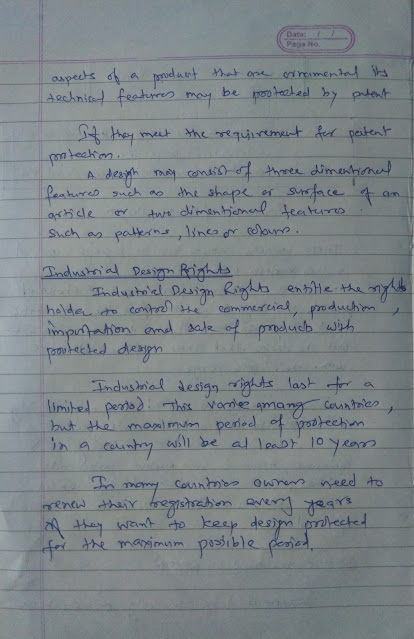 Date: / /
Page No.
aspects of a product that are ornamental its
technical features may be prot​ected by patent
If they meet the requirement for patent
protection.
A design may consist of three dimentional
features such as the shape or surface of an
article or two dimentional features.
such as patterns, lines or colours.
Industrial Design Rights
Industrial Design Rights entitle the rights
holder to control the commercial, production,
importation and sale of products with
protected design
Industrial design rights last for a
limited period. This varies among countries,
but the maximum period of protection
in a country will be at least 10 years
In many countries owners need to
renew their registration every years
if they want to keep design protected
for the maximum possible period.